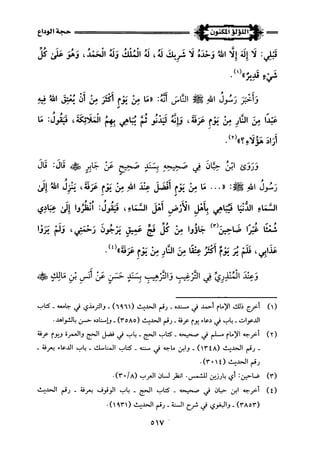 حجة الوداع
اللؤلؤ المكنون
قَبْلِي: لَا إِلَهَ إِلَّا اللهُ وَحْدَهُ لَا شَرِيكَ لَهُ، لَهُ الْمُلْكُ وَلَهُ الْحَمْدُ، وَهُوَ عَلَى كُلِّ
شَيْءٍ قَدِيرٌ»(١).
وَأَخْبَرَ رَسُولُ اللهِ ﷺ النَّاسَ أَنَّهُ: «مَا مِنْ يَوْمٍ أَكْثَرَ مِنْ أَنْ يُعْتِقَ اللهُ فِيهِ
عَبْدًا مِنَ النَّارِ مِنْ يَوْمِ عَرَفَةَ، وَإِنَّهُ لَيَدْنُو ثُمَّ يُبَاهِي بِهِمُ الْمَلَائِكَةَ، فَيَقُولُ: مَا
أَرَادَ هَؤُلَاءِ؟»(٢).
وَرَوَىٰ ابْنُ حِبَّانَ فِي صَحِيحِهِ بِسَنَدٍ صَحِيحٍ عَنْ جَابِرٍ ﷺ قَالَ: قَالَ
رَسُولُ اللهِ ﷺ: «... مَا مِنْ يَوْمٍ أَفْضَلَ عِنْدَ اللهِ مِنْ يَوْمِ عَرَفَةَ، يَنْزِلُ اللهُ إِلَى
السَّمَاءِ الدُّنْيَا فَيُبَاهِي بِأَهْلِ الْأَرْضِ أَهْلَ السَّمَاءِ، فَيَقُولُ: انْظُرُوا إِلَى عِبَادِي
شُعْثًا غُبْرًا ضَاحِينَ(٣) جَاؤُوا مِنْ كُلِّ فَجٍّ عَمِيقٍ يَرْجُونَ رَحْمَتِي، وَلَمْ يَرَوْا
عَذَابِي، فَلَمْ يُرَ يَوْمٌ أَكْثَرُ عِتْقًا مِنَ النَّارِ مِنْ يَوْمِ عَرَفَةَ»(٤).
وَعِنْدَ الْمُنْذِرِيِّ فِي التَّرْغِيبِ وَالتَّرْهِيبِ بِسَنَدٍ حَسَنٍ عَنْ أَنَسِ بْنِ مَالِكٍ ﷺ
(١) أخرج ذلك الإمام أحمد في مسنده ـ رقم الحديث (٦٩٦١) ـ والترمذي في جامعه ـ كتاب
الدعوات ـ باب في دعاء يوم عرفة ـ رقم الحديث (٣٥٨٥) ـ وإسناده حسن بالشواهد.
(٢) أخرجه الإمام مسلم في صحيحه ـ كتاب الحج ـ باب في فضل الحج والعمرة ويوم عرفة
ـ رقم الحديث (١٣٤٨) ـ وابن ماجه في سننه ـ كتاب المناسك ـ باب الدعاء بعرفة ـ
رقم الحديث (٣٠١٤).
(٣) ضاحين: أي بارزين للشمس. انظر لسان العرب (٣٠/٨).
(٤) أخرجه ابن حبان في صحيحه ـ كتاب الحج ـ باب الوقوف بعرفة ـ رقم الحديث
(٣٨٥٣) ـ والبغوي في شرح السنة ـ رقم الحديث (١٩٣١).
٥١٧